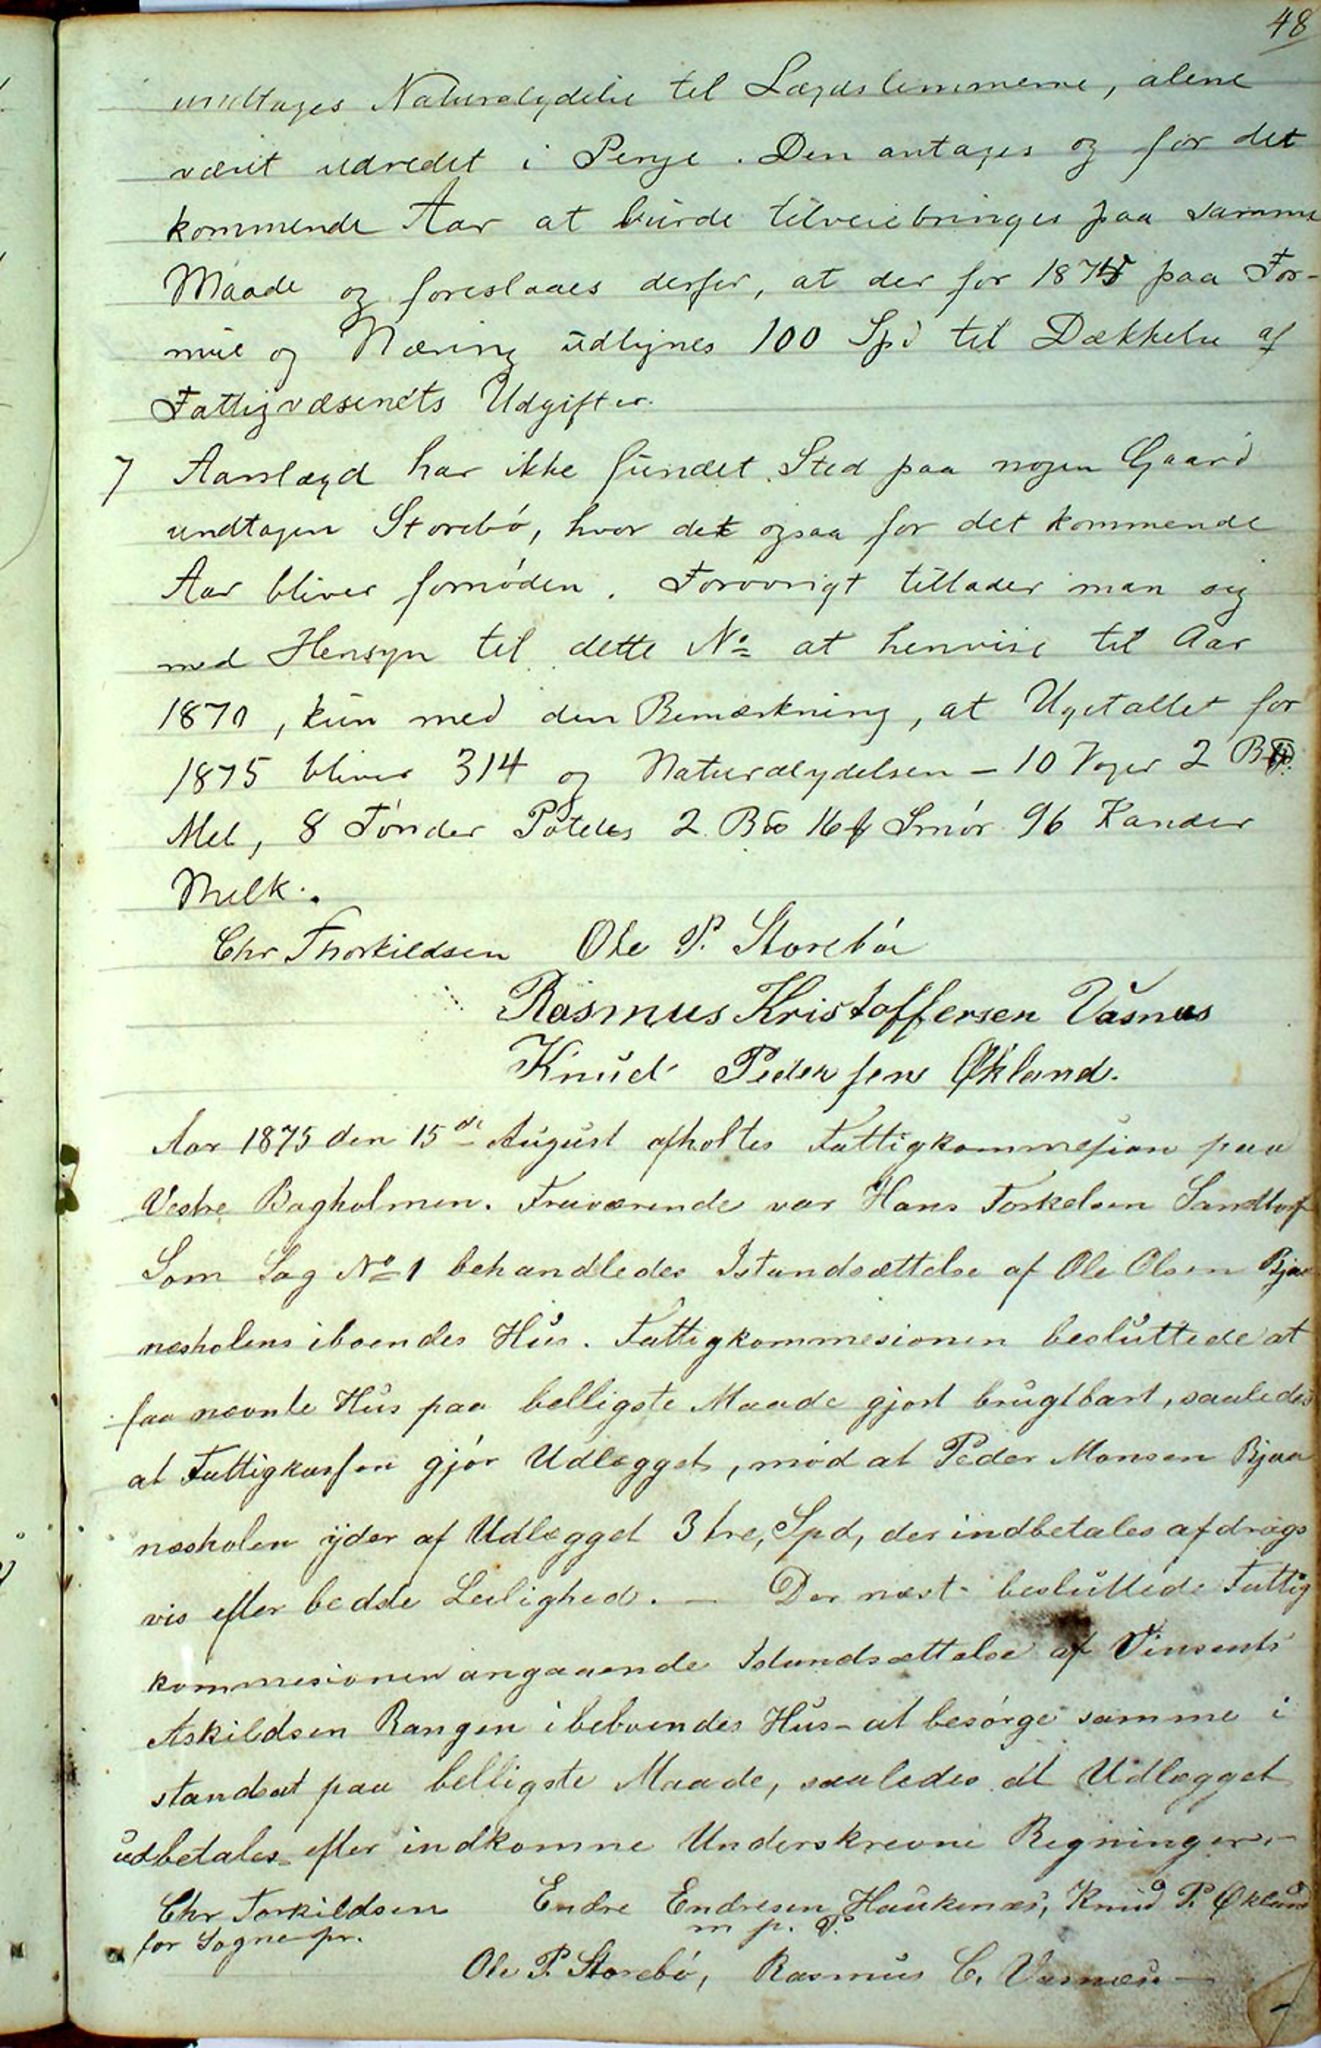 48
undtages Naturalydelse til Lægdslemmerne, alene
været udredet i Penge. Den antages og for det
kommende Aar at burde tilveiebringes paa samme
Maade og foreslaaes derfor, at der for 1875 paa For-
mue og Næring udlignes 100 Spd til Dækkelse af
Fattigvæsenets Udgifter.
7 Aarslægd har ikke fundet Sted paa nogen Gaard
undtagen Storebø, hvor det ogsaa for det kommende
Aar bliver fornøden. Forøvrigt tillader man sig
med Hensyn til dette No at henvise til Aar
1870, kun med den Bemærkning, at Ugetallet for
1875 bliver 314 og Naturalydelsen - 10 Voger 2 B℔
Mel, 8 Tønder Potetes 2 B℔ 16 ℔ Smør 96 Kander
Melk.
Chr Thorkildsen Ole P. Storebøe
Rasmus Kristoffersen Vasnes
Knud Pedersen Økland.
Aar 1875 den 15de August afholtes Fattigkommesion paa
Vestre Bagholmen. Fraværende var Hans Torkelsen Sandtorf
Som Sag No 1 behandledes Istandsættelse af Ole Olsen Bjaa
næsholens iboendes Hus. Fattigkommesionen besluttede at
faa nævnte Hus paa belligste Maade gjort brugtbart, saaledes
at Fattigkassen gjør Udlægget, mod at Peder Monsen Bjaa
næsholen yder af Udlægget 3 tre, Spd, der indbetales afdrags
vis efter bedste Leilighed. — Der næst besluttede Fattig
kommesionen angaaende Istandsættelse af Vinsents
Askildsen Rangen ibeboendes Hus - at besørge samme i
standsat paa belligste Maade, saaledes at Udlægget
udbetales efter indkomne Underskrevne Regninger.-
Chr Torkildsen Endre Endresen Haukenæs, Knud P. Økland
for Sognepr. m p. P.
Ole P. Storebø, Rasmus C. Vasnæs